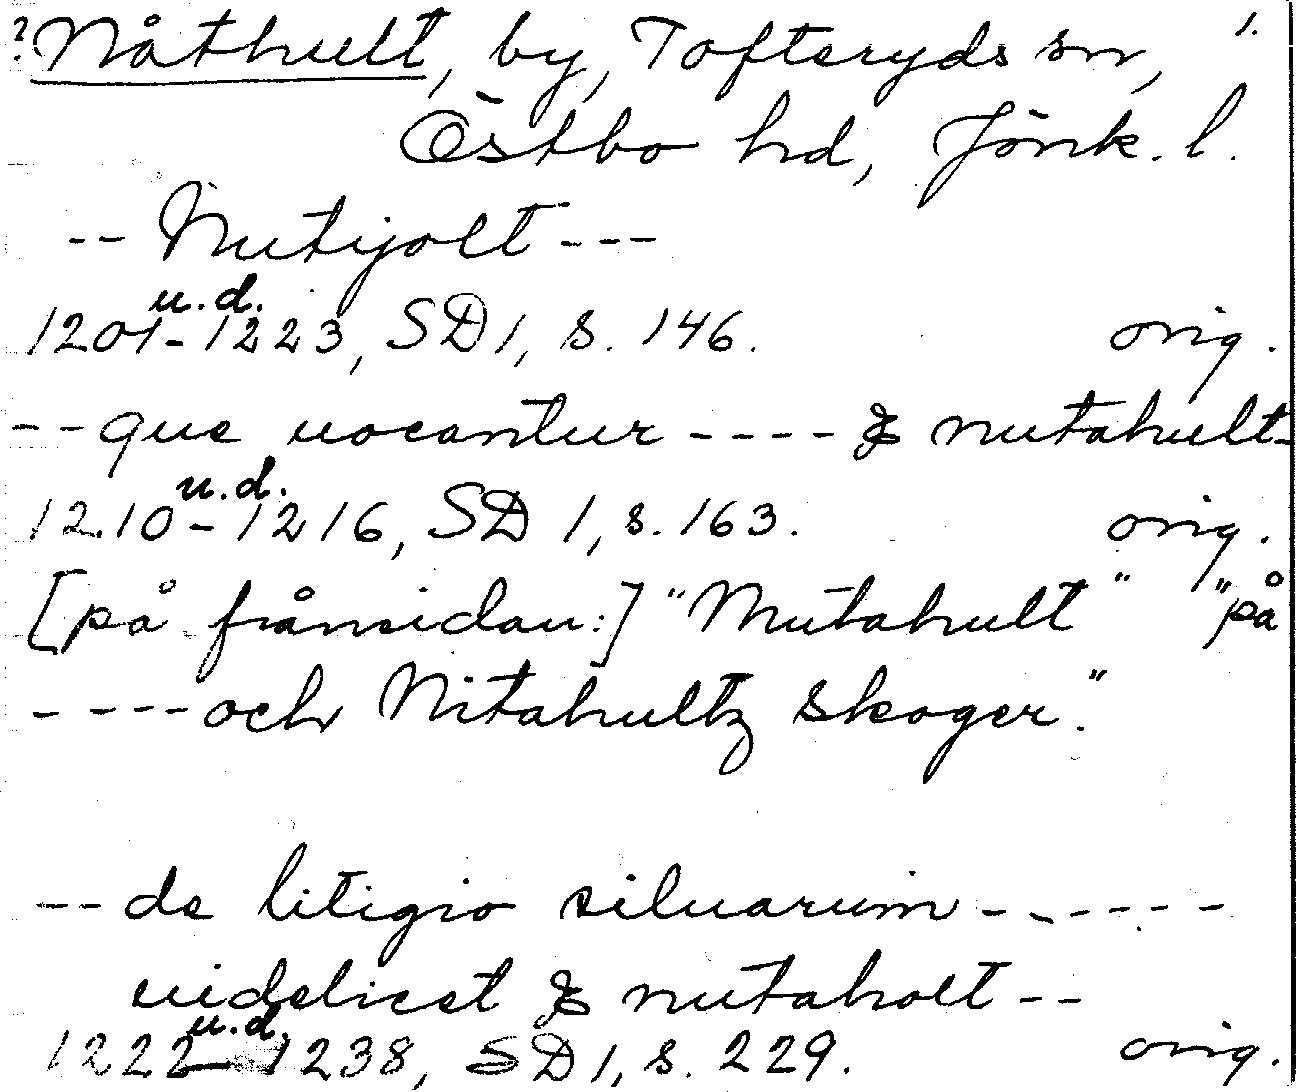 ? Nåthult, by, Tofteryds sn, 1.
Östbo hd, Jönk. l.
-- Nutijolt ---
u.d.
1201-1223, SD 1, s. 146. orig.
-- que uocantur ---- & nutahult-
u.d.
1210-1216, SD 1, s. 163. orig.
[på frånsidan:] "Mutahult" "på
---- och Nitahultz skoger."
-- de litigio siluarum ------
uidelicet & nutaholt --
u.d.
1222-1238, SD 1, s. 229. orig.